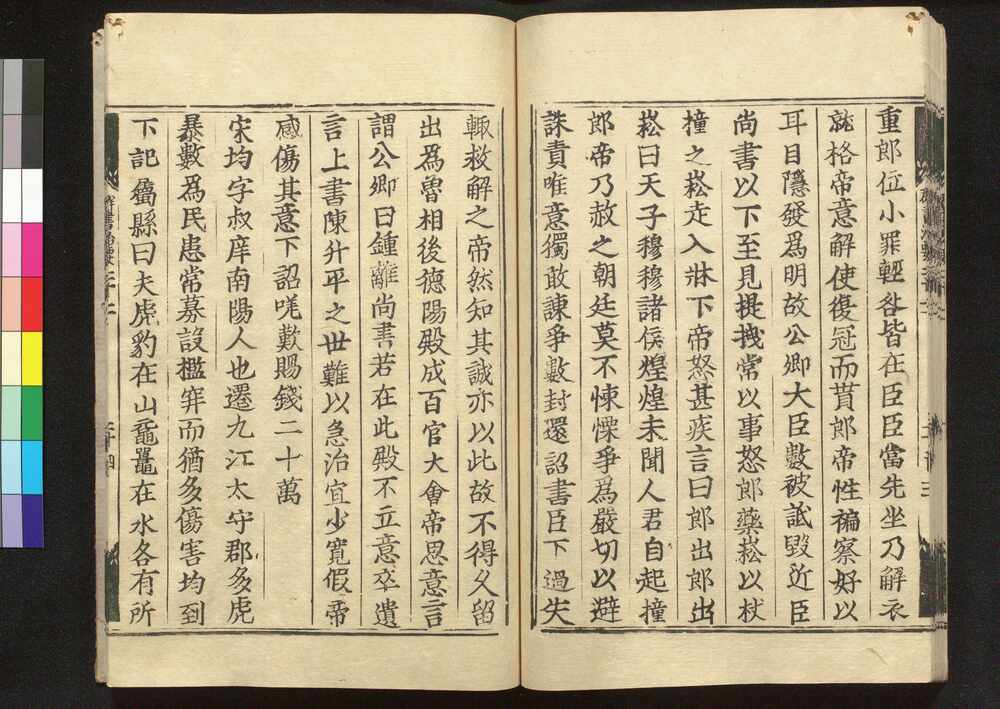 重郎位小罪輕咎皆在臣臣當先坐乃解衣
就格帝意解使復冠而貰郎帝性褊察好以
耳目隱發爲明故公卿大臣數被詆毀近臣
尚書以下至見提拽常以事怒郎藥崧以杖
撞之崧走入牀下帝怒甚疾言曰郎出郎出
崧曰天子穆穆諸侯煌煌未聞人君自起撞
郎帝乃赦之朝廷莫不悚慄爭爲嚴切以避
誅責唯意獨敢諫爭數封還詔書臣下過失
輒救解之帝然知其誠亦以此故不得久留
出爲魯相後德陽殿成百官大會帝思意言
謂公卿曰鍾離尚書若在此殿不立意卒遺
言上書陳升平之世難以急治宜少寬假帝
感傷其意下詔嗟歎賜錢二十萬
宋均字叔庠南陽人也遷九江太守郡多虎
暴數爲民患常募設檻穽而猶多傷害均到
下記屬縣曰夫虎豹在山黿鼉在水各有所